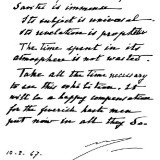 is immense
Its subject is universal
Its revelation is prophetic
The time spent in its
atmosphere is not wasted.
Take all the time necessary
to see this white team. It
will be a happy compensation
for the feverish haste men
put now in all they do.
12.2.67.